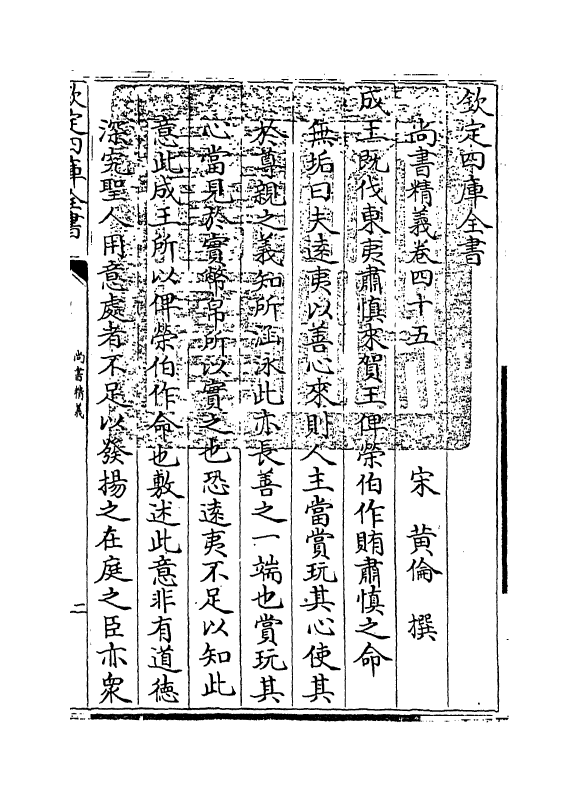 欽定四庫全書
尚書精義卷四十五
宋 黃倫 撰
成王既伐東夷肅慎來賀王俾榮伯作賄肅慎之命
無垢曰夫遠夷以善心來則人主當賞玩其心使其
於尊親之義知所涵泳此亦長善之一端也賞玩其
心當見於實幣帛所以實之也恐遠夷不足以知此
意此成王所以俾榮伯作命也敷述此意非有道徳
深究聖人用意處者不足以發揚之在庭之臣亦衆
欽定四庫全書
尚書精義